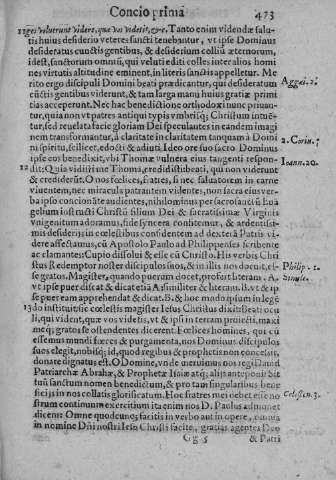 Concio prima 473
12 ges voluerunt videre, quæ vos videtis, &c. Tanto enim videndæ salu-
tis huius desiderio veteres sancti tenebantur, vt ipse Dominus
desideratus cunctis gentibus, & desiderium collium æternorum,
idest, sanctorum omniũ, qui veluti editi colles inter alios homi
nes virtutis altitudine eminent, in literis sanctis appelletur. Me
rito ergo discipuli Domini beati prædicantur, qui desideratum Aggei. 2.
cũctis gentibus viderunt, & tam larga manu huius gratiæ primi
tias acceperunt. Nec hac benedictione orthodoxi nunc priuan-
tur, quia non vt patres antiqui typis vmbrisq; Christum intuẽ-
tur, sed reuelata facie gloriam Dei speculantes in eandem imagi
nem transformantur, à claritate in claritatem tanquam à Domi
ni spiritu, scilicet, edocti & adiuti. Ideo ore suo sacro Dominus 2. Corin. 3.
ipse eos benedixit, vbi Thomæ vulnera eius tangenti respon- Ioann. 20.
12 dit: Quia vidisti me Thoma, credidisti: beati, qui non viderunt
& crediderũt. O nos fœlices, fratres, si nec saluatorem in carne
viuentem, nec miracula patrantem videntes, non sacra eius ver-
ba ipso concionãte audientes, nihilominus per sacrosanctũ Euã
gelium Iesum Christũ filium Dei & sacratissimæ Virginis
vnigenitum adoramus, fide syncera confitemur, & ardentissi-
mis desiderijs in cœlestibus consedentem ad dexterã Patris vi-
dere affectamus, cũ Apostolo Paulo ad Philippenses scribente
ac clamantes: Cupio dissolui & esse cũ Christo. His verbis Chri
stus Redemptor noster discipulos suos, & in illis nos docuit, id- Philip. 1.
se gratos. Magister, quando puerum docet, profert literam A, Simile.
vt ipse puer dicat & dicat etiã A: similiter & literam B. vt & ip
se puer eam apprehendat & dicat B. & hoc modo ipsum in lege
13 do instituit: sic cœlestis magister Iesus Christus dixit: Beati ocu
li, qui vident, quæ vos videtis, vt & ipsi in terram proiecti, maxi
meq; gratos se ostendentes dicerent: Fœlices homines, qui cũ
essemus mundi fœces & purgamenta, nos Dominus discipulos
suos elegit, nobisq; id, quod regibus & prophetis non concessit,
donare dignatus est. O Domine, vnde meruimus nos regi Dauid
Patriarchæ Abrahæ, & Prophetæ Isaiæ atq; alijs anteponi? Sit
tuũ sanctum nomen benedictum, & pro tam singularibus bene
ficijs in nos collatis glorificatum. Hoc fratres mei debet esse no Colossen. 3.
strum continuum exercitium: ita enim nos D. Paulus admonet
dicens: Omne quodcunq; facitis in verbo aut in opere, omnia
in nomine Dñi nostri Iesu Christi facite, gratias agentes Deo
Gg 5 & Patri